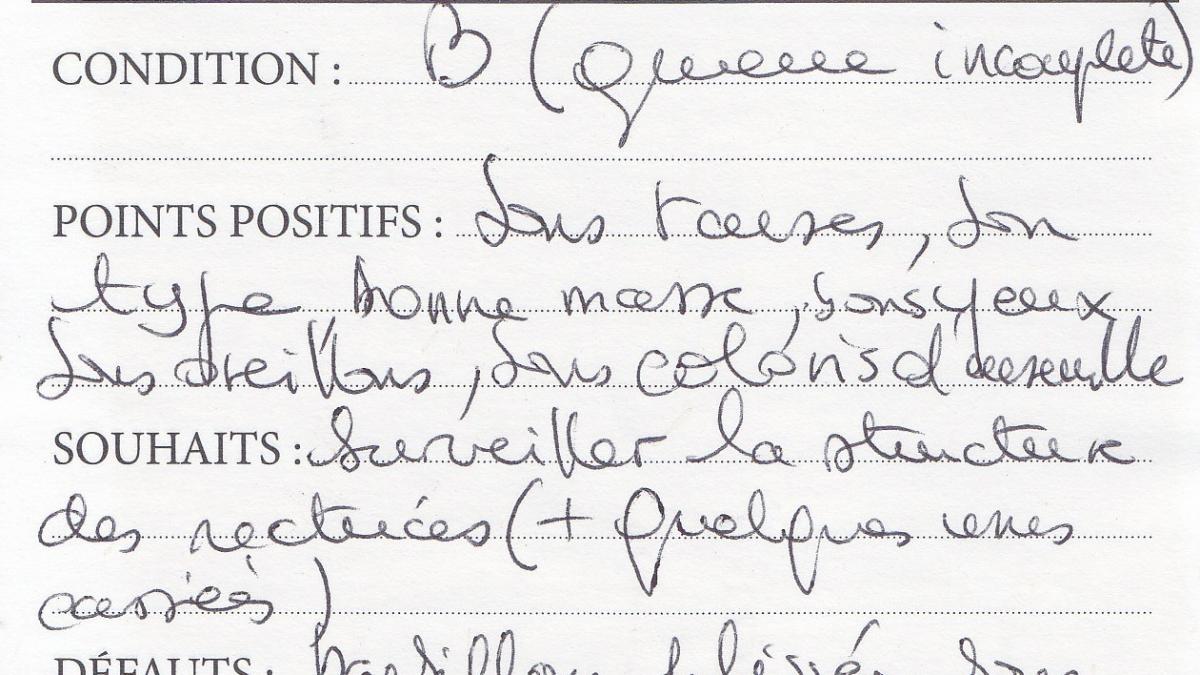 CONDITION : B (queue incomplète)
POINTS POSITIFS : Bons tarses, bon
type bonne masse, bons yeux
bons oreillons, bons coloris d'ensemble
SOUHAITS : Surveiller la structure
des rectrices (+ quelques unes
cassées)
DÉFAUTS : plissé, bons